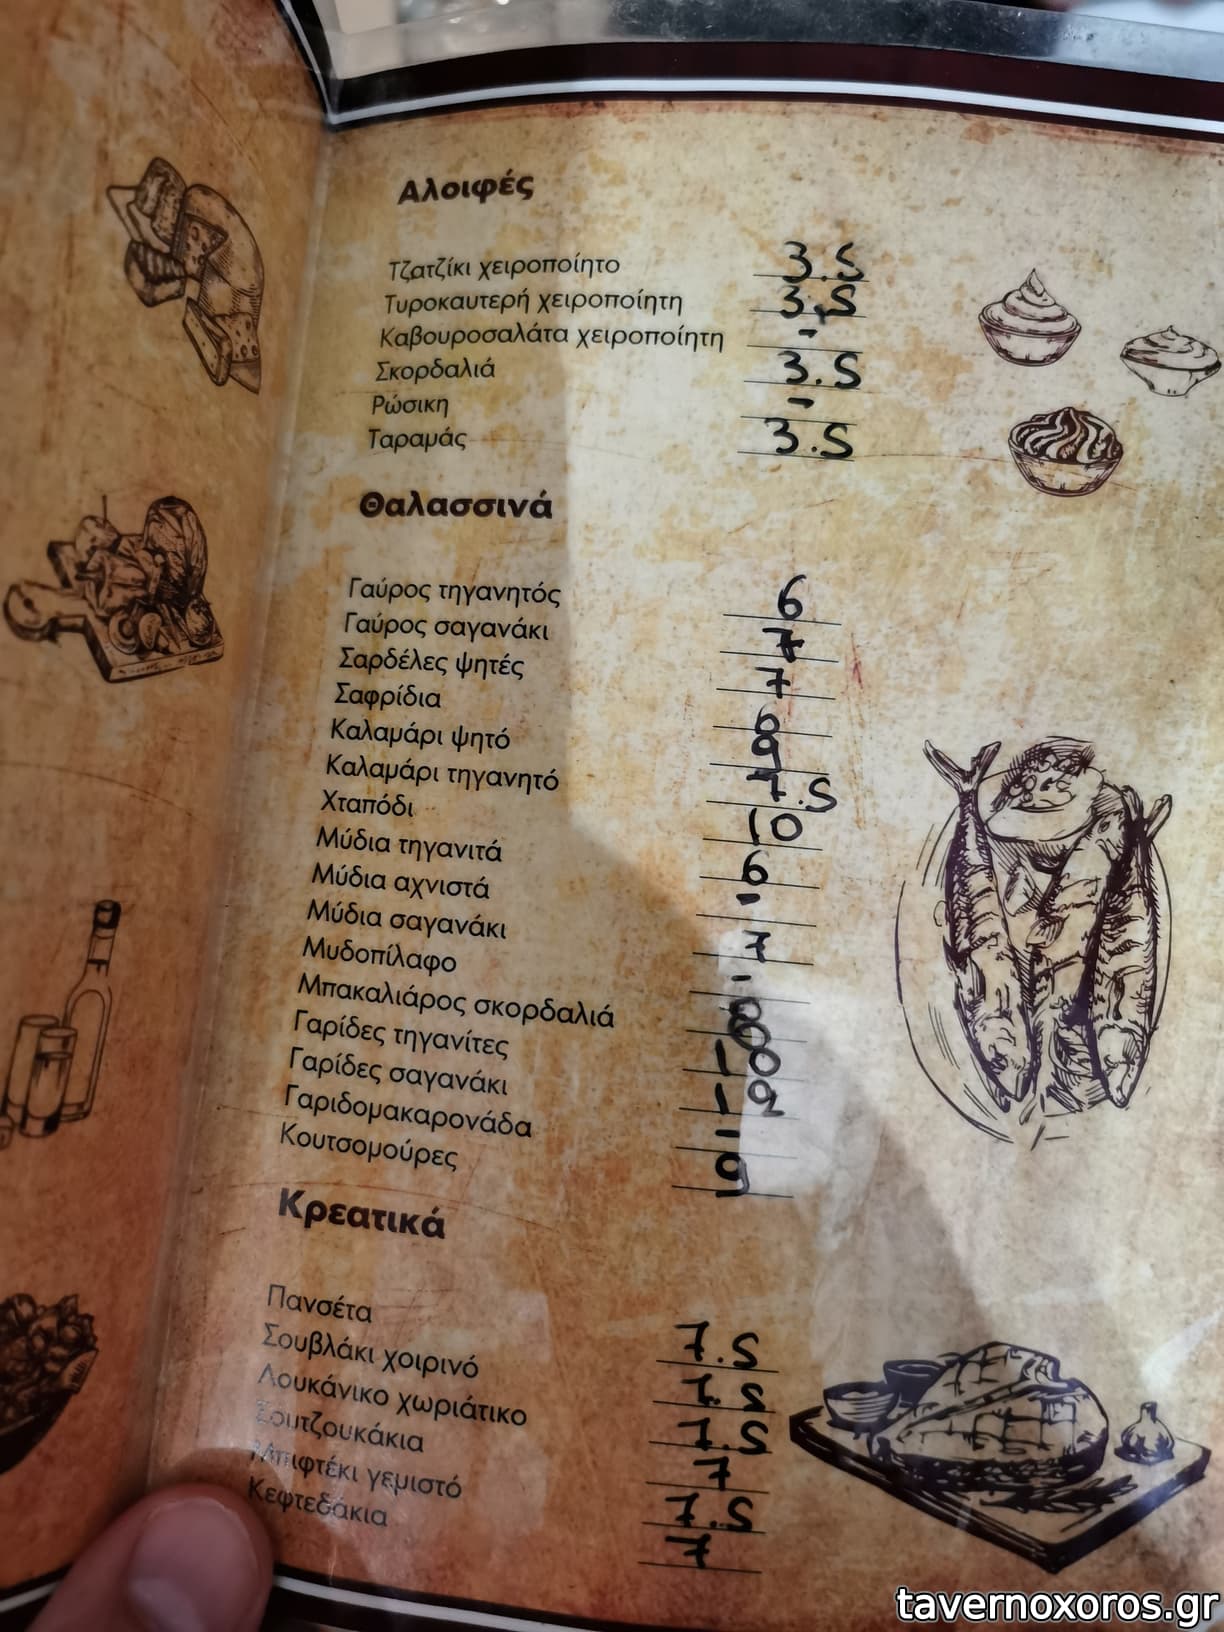 Αλοιφές
Τζατζίκι χειροποίητο 3.5
Τυροκαυτερή χειροποίητη 3.5
Καβουροσαλάτα χειροποίητη -
Σκορδαλιά 3.5
Ρώσικη -
Ταραμάς 3.5
Θαλασσινά
Γαύρος τηγανητός 6
Γαύρος σαγανάκι 7
Σαρδέλες ψητές 7
Σαφρίδια 6
Καλαμάρι ψητό 9
Καλαμάρι τηγανητό 7.5
Χταπόδι 10
Μύδια τηγανιτά 6
Μύδια αχνιστά -
Μύδια σαγανάκι 7
Μυδοπίλαφο -
Μπακαλιάρος σκορδαλιά
Γαρίδες τηγανίτες 10
Γαρίδες σαγανάκι
Γαριδομακαρονάδα -
Κουτσομούρες 9
Κρεατικά
Πανσέτα 7.5
Σουβλάκι χοιρινό 7.5
Λουκάνικο χωριάτικο 7.5
Σουτζουκάκια 7
Μπιφτέκι γεμιστό 7.5
Κεφτεδάκια 7
tavernoxoros.gr